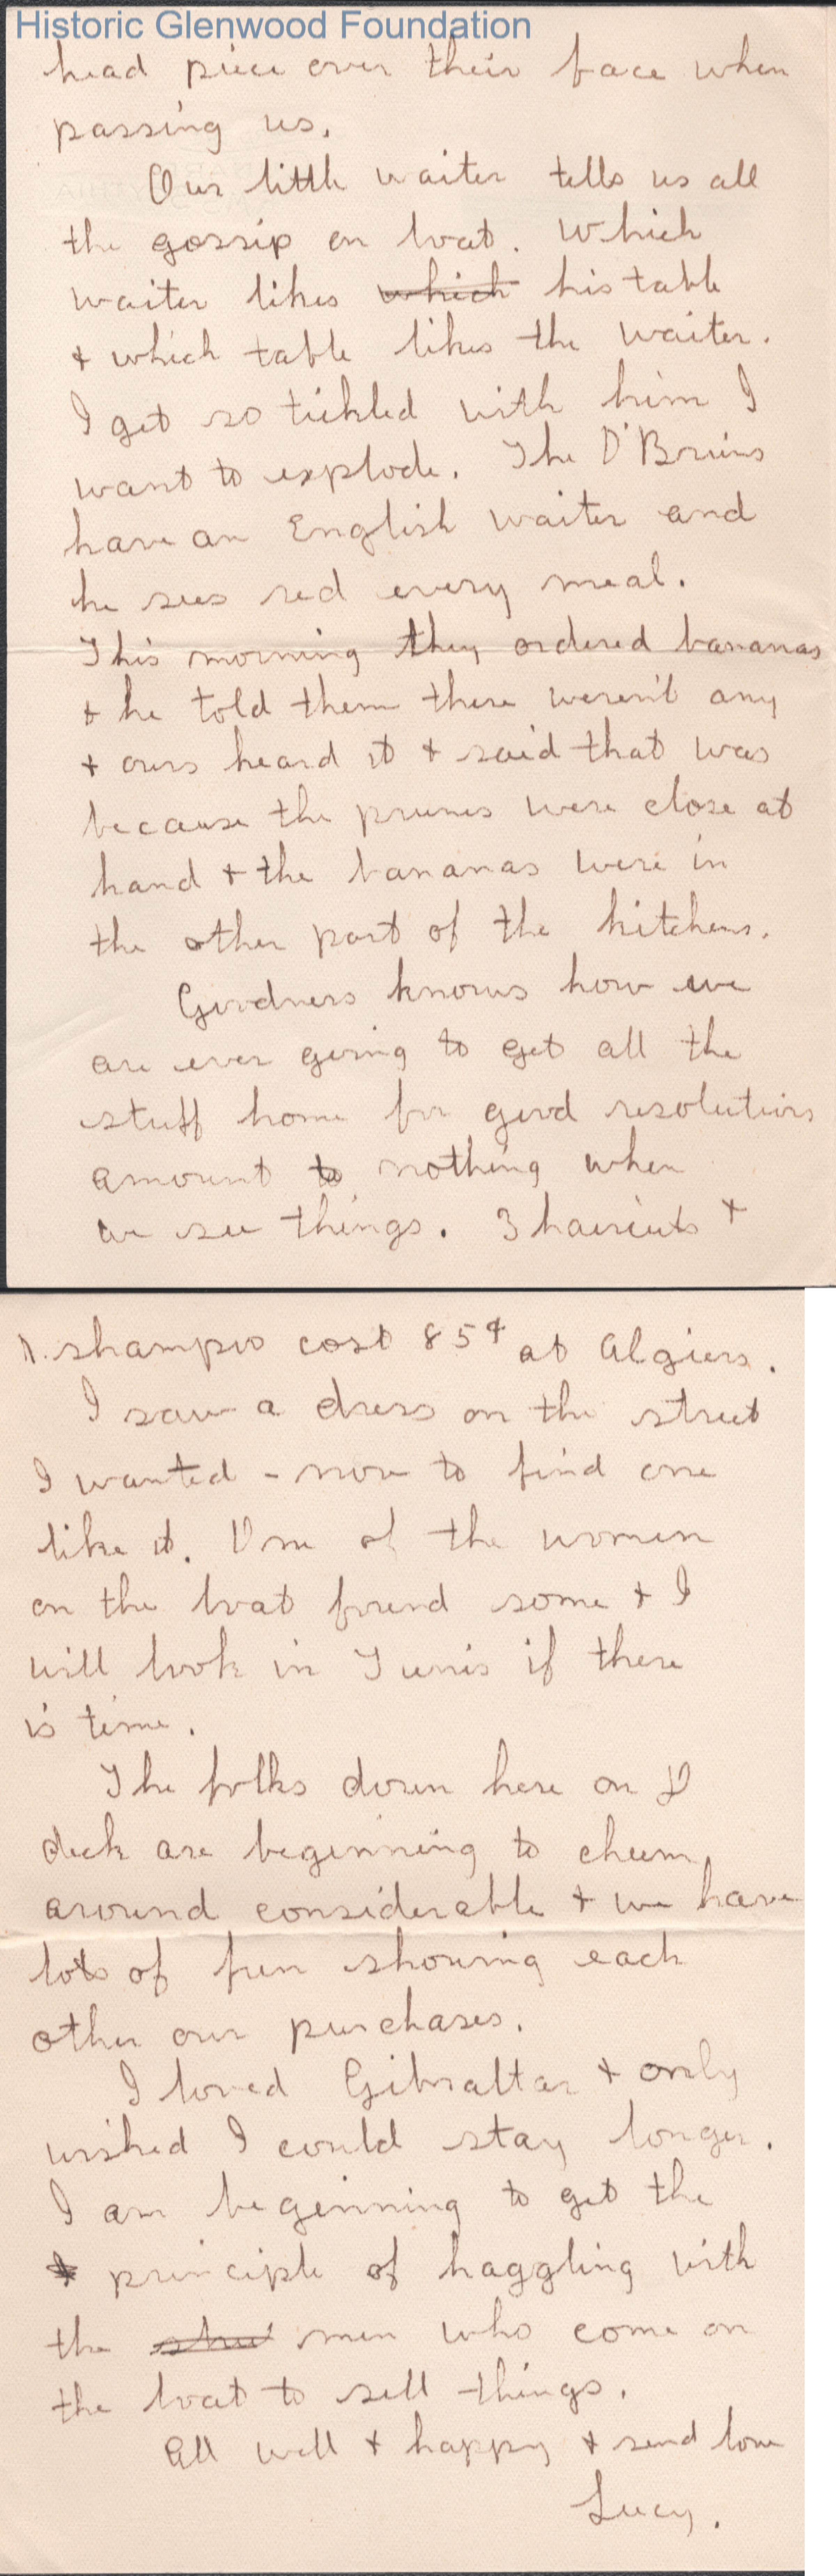 Historic Glenwood Foundation
head piece over their face when
passing us.
Our little waiter tells us all
the gossip on boat. Which
waiter likes ~~which~~ his table
+ which table likes the waiter.
I get so tickled with him I
want to explode. The O'Briens
have an English waiter and
he sees red every meal.
This morning they ordered bananas
+ he told them there weren't any
+ ours heard it + said that was
because the prunes were close at
hand + the bananas were in
the other part of the kitchens.
Goodness knows how we
are ever going to get all the
stuff home for good resolutions
amount to nothing when
we see things. 3 haircuts +
1. shampoo cost 85¢ at Algiers.
I saw a dress on the street
I wanted - now to find one
like it. One of the women
on the boat found some + I
will look in Tunis if there
is time.
The folks down here on D
deck are beginning to chum
around considerable + we have
lots of fun showing each
other our purchases.
I loved Gibraltar + only
wished I could stay longer.
I am beginning to get the
principle of haggling with
the men who come on
the boat to sell things.
All well + happy + send love
Lucy.